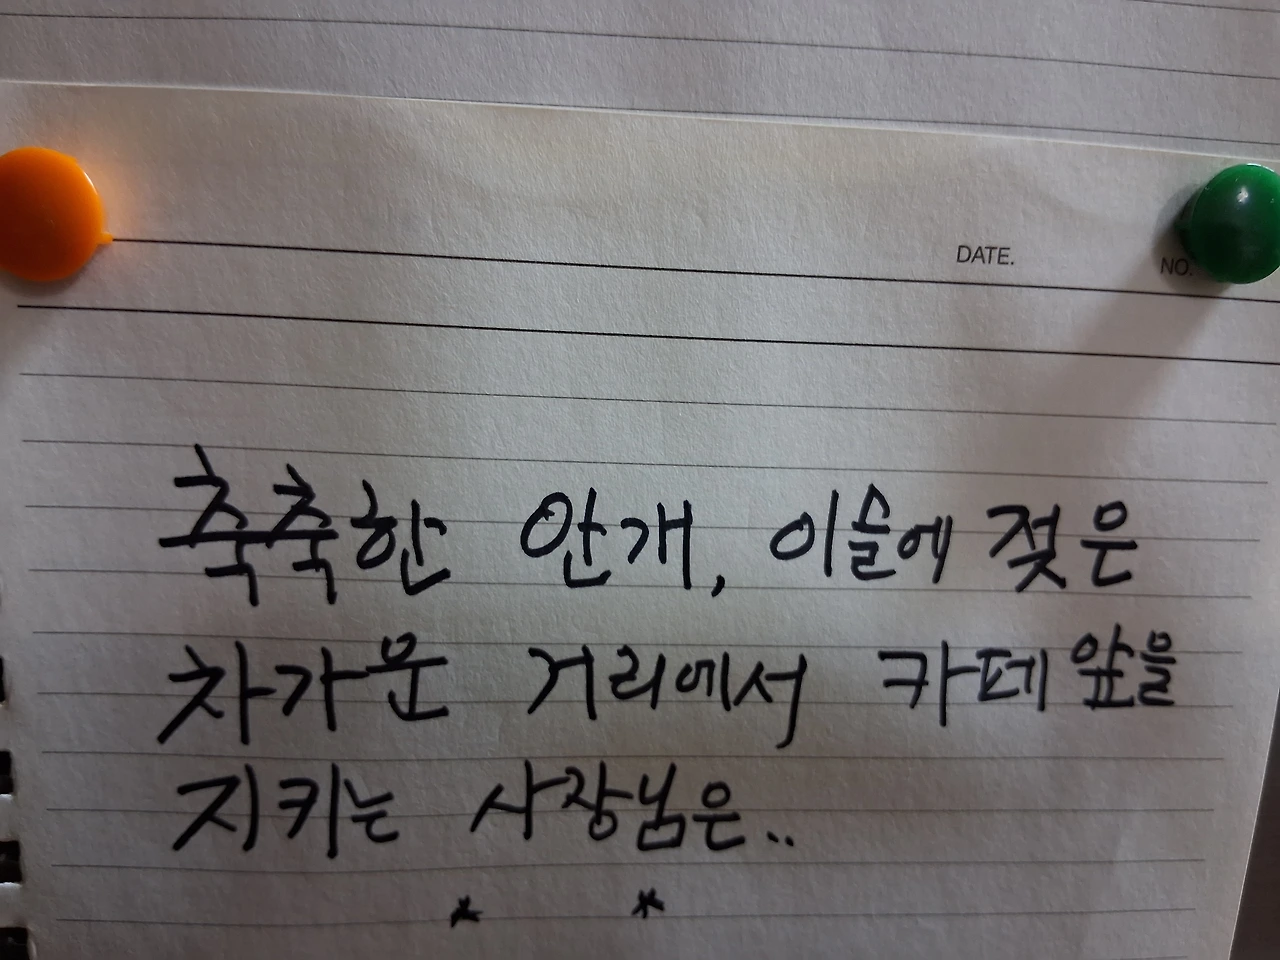 DATE.
NO.
축축한 안개, 이슬에 젖은
차가운 거리에서 카페 앞을
지키는 사장님은..
* *